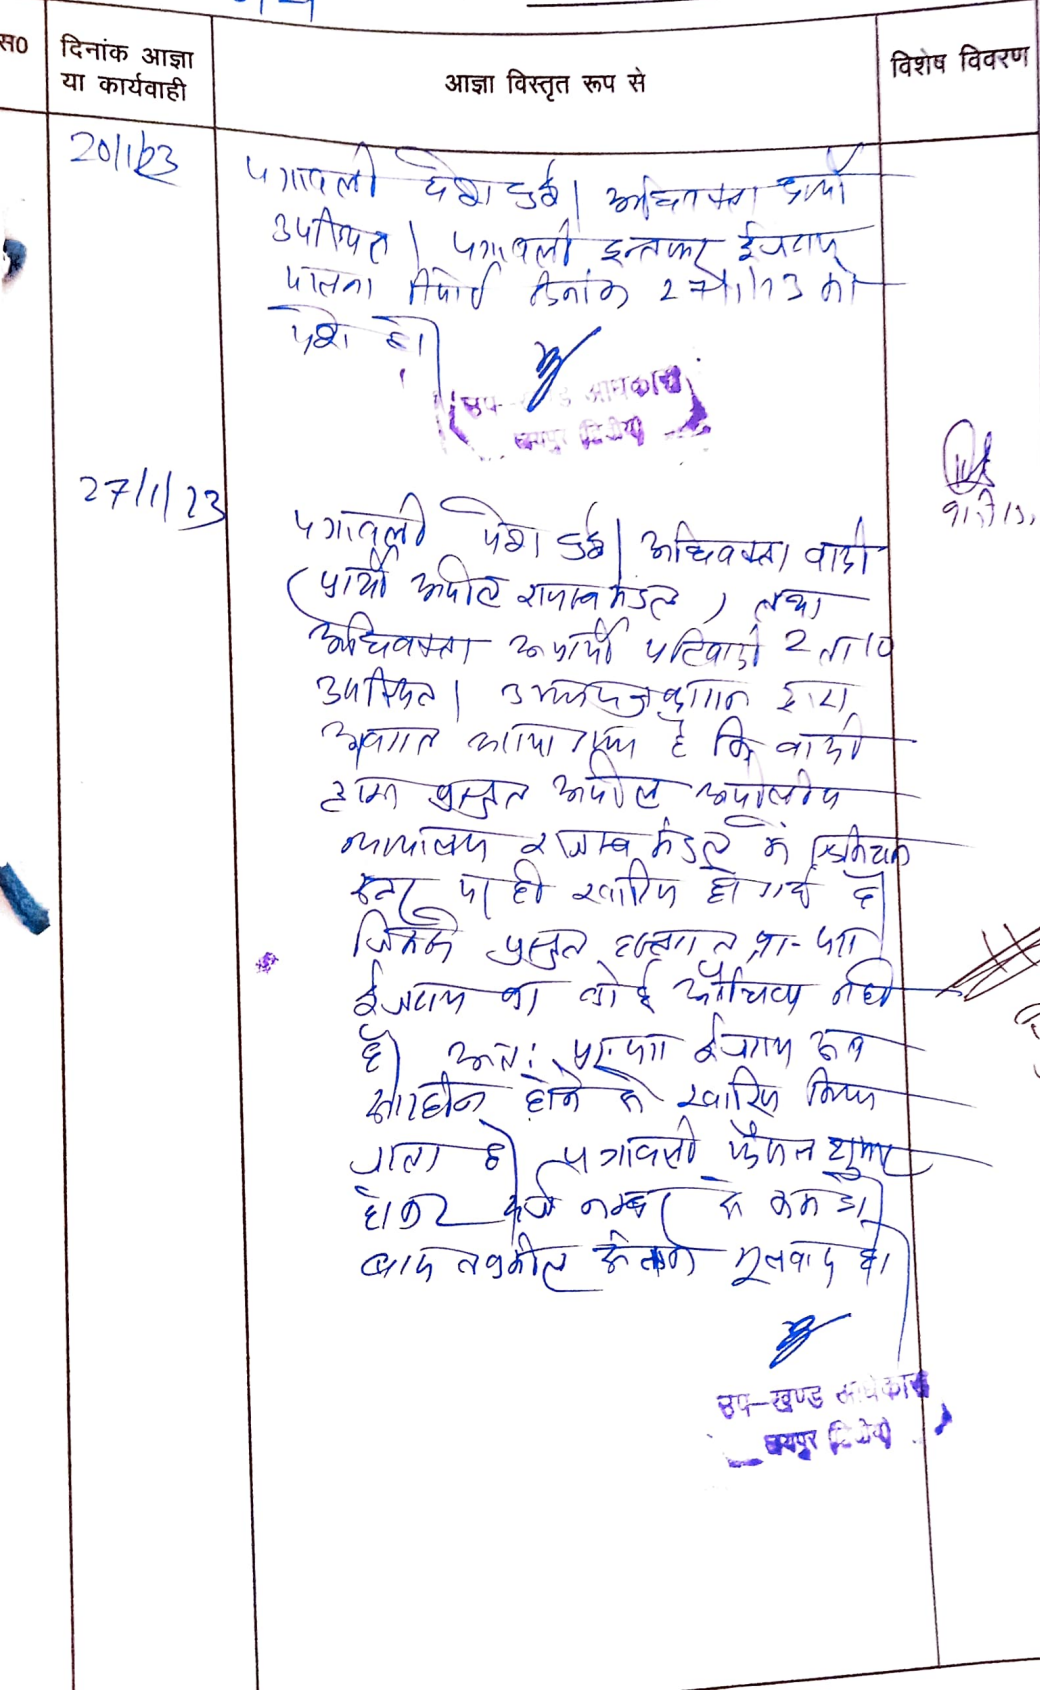 स0
दिनांक आज्ञा
या कार्यवाही
आज्ञा विस्तृत रूप से
विशेष विवरण
20/1/23
पत्रावली पेश हुई। अधिवक्ता प्रार्थी
उपस्थित। पत्रावली इन्तजार ईजराय
पालना रिपोर्ट दिनांक 27/1/23 को
पेश हो।
उप-
जयपुर द्वितीय
27/1/23
पत्रावली पेश हुई। अधिवक्ता वादी
(प्रार्थी अपील राजस्व मंडल) तथा
अधिवक्ता अप्रार्थी प्रतिवादी 2 ता 10
उपस्थित। द्वारा
अवगत कराया गया है कि वादी
द्वारा प्रस्तुत अपील अपीलीय
न्यायालय राजस्व मंडल में
स्तर पर ही खारिज हो गई है।
जिससे प्रस्तुत हस्तगत प्रा-पत्र
ईजराय का कोई औचित्य नही
है। अतः ईजराय
सारहीन होने से खारिज किया
जाता है। पत्रावली फैसल शुमार
होकर नम्बर से कम हो।
बाद तकमील मूलवाद हो।
उप-खण्ड अधिकारी
जयपुर द्वितीय